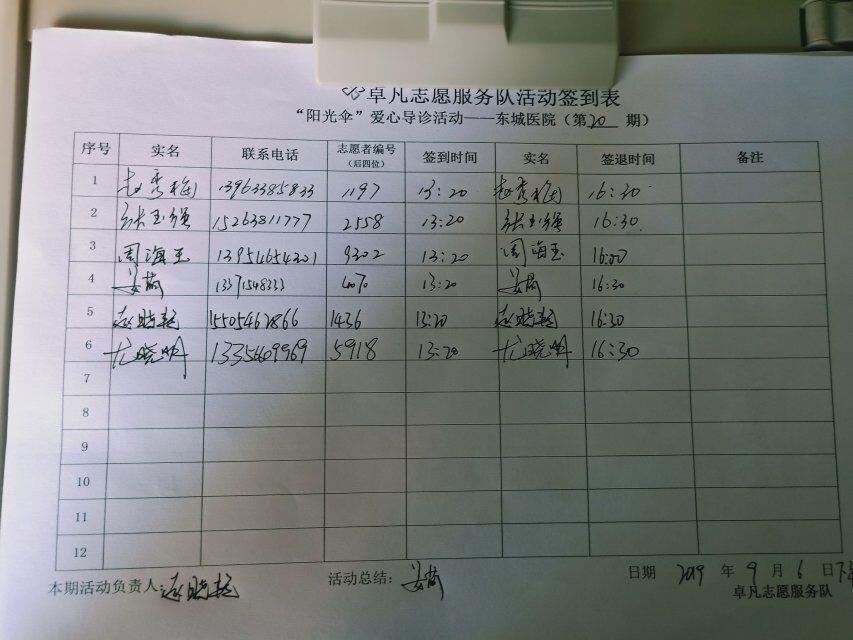 卓凡志愿服务队活动签到表
“阳光伞”爱心导诊活动——东城医院（第20期）
序号 实名 联系电话 志愿者编号（后四位） 签到时间 实名 签退时间 备注
1 赵秀梅 13963385833 1197 13:20 赵秀梅 16:30
2 张玉强 15263811777 2558 13:20 张玉强 16:30
3 周海玉 13954654301 9302 13:20 周海玉 16:00
4 13371548333 13:20 16:30
5 赵晓艳 15505462866 1436 13:20 赵晓艳 16:30
6 尤晓明 1335609969 5918 13:20 尤晓明 16:30
7
8
9
10
11
12
本期活动负责人：赵晓艳 活动总结： 日期 2019 年 9 月 6 日下
卓凡志愿服务队